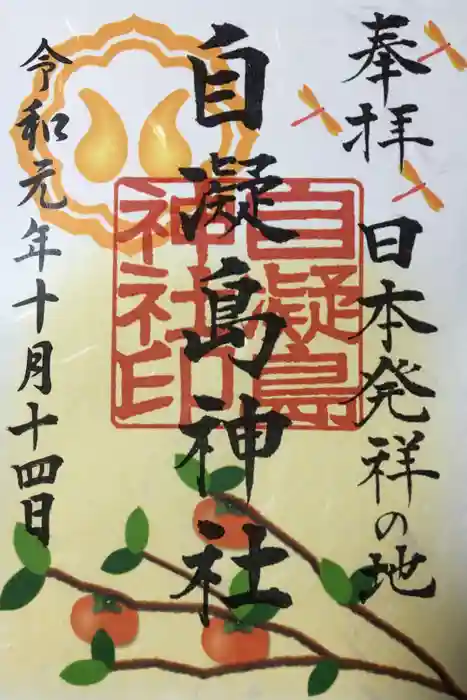 奉拝
日本発祥の地
自凝島神社
自凝島神社印
令和元年十月十四日